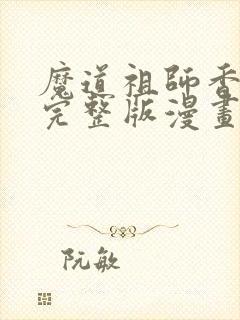 魔道祖師香
完整版漫畫
阮敏